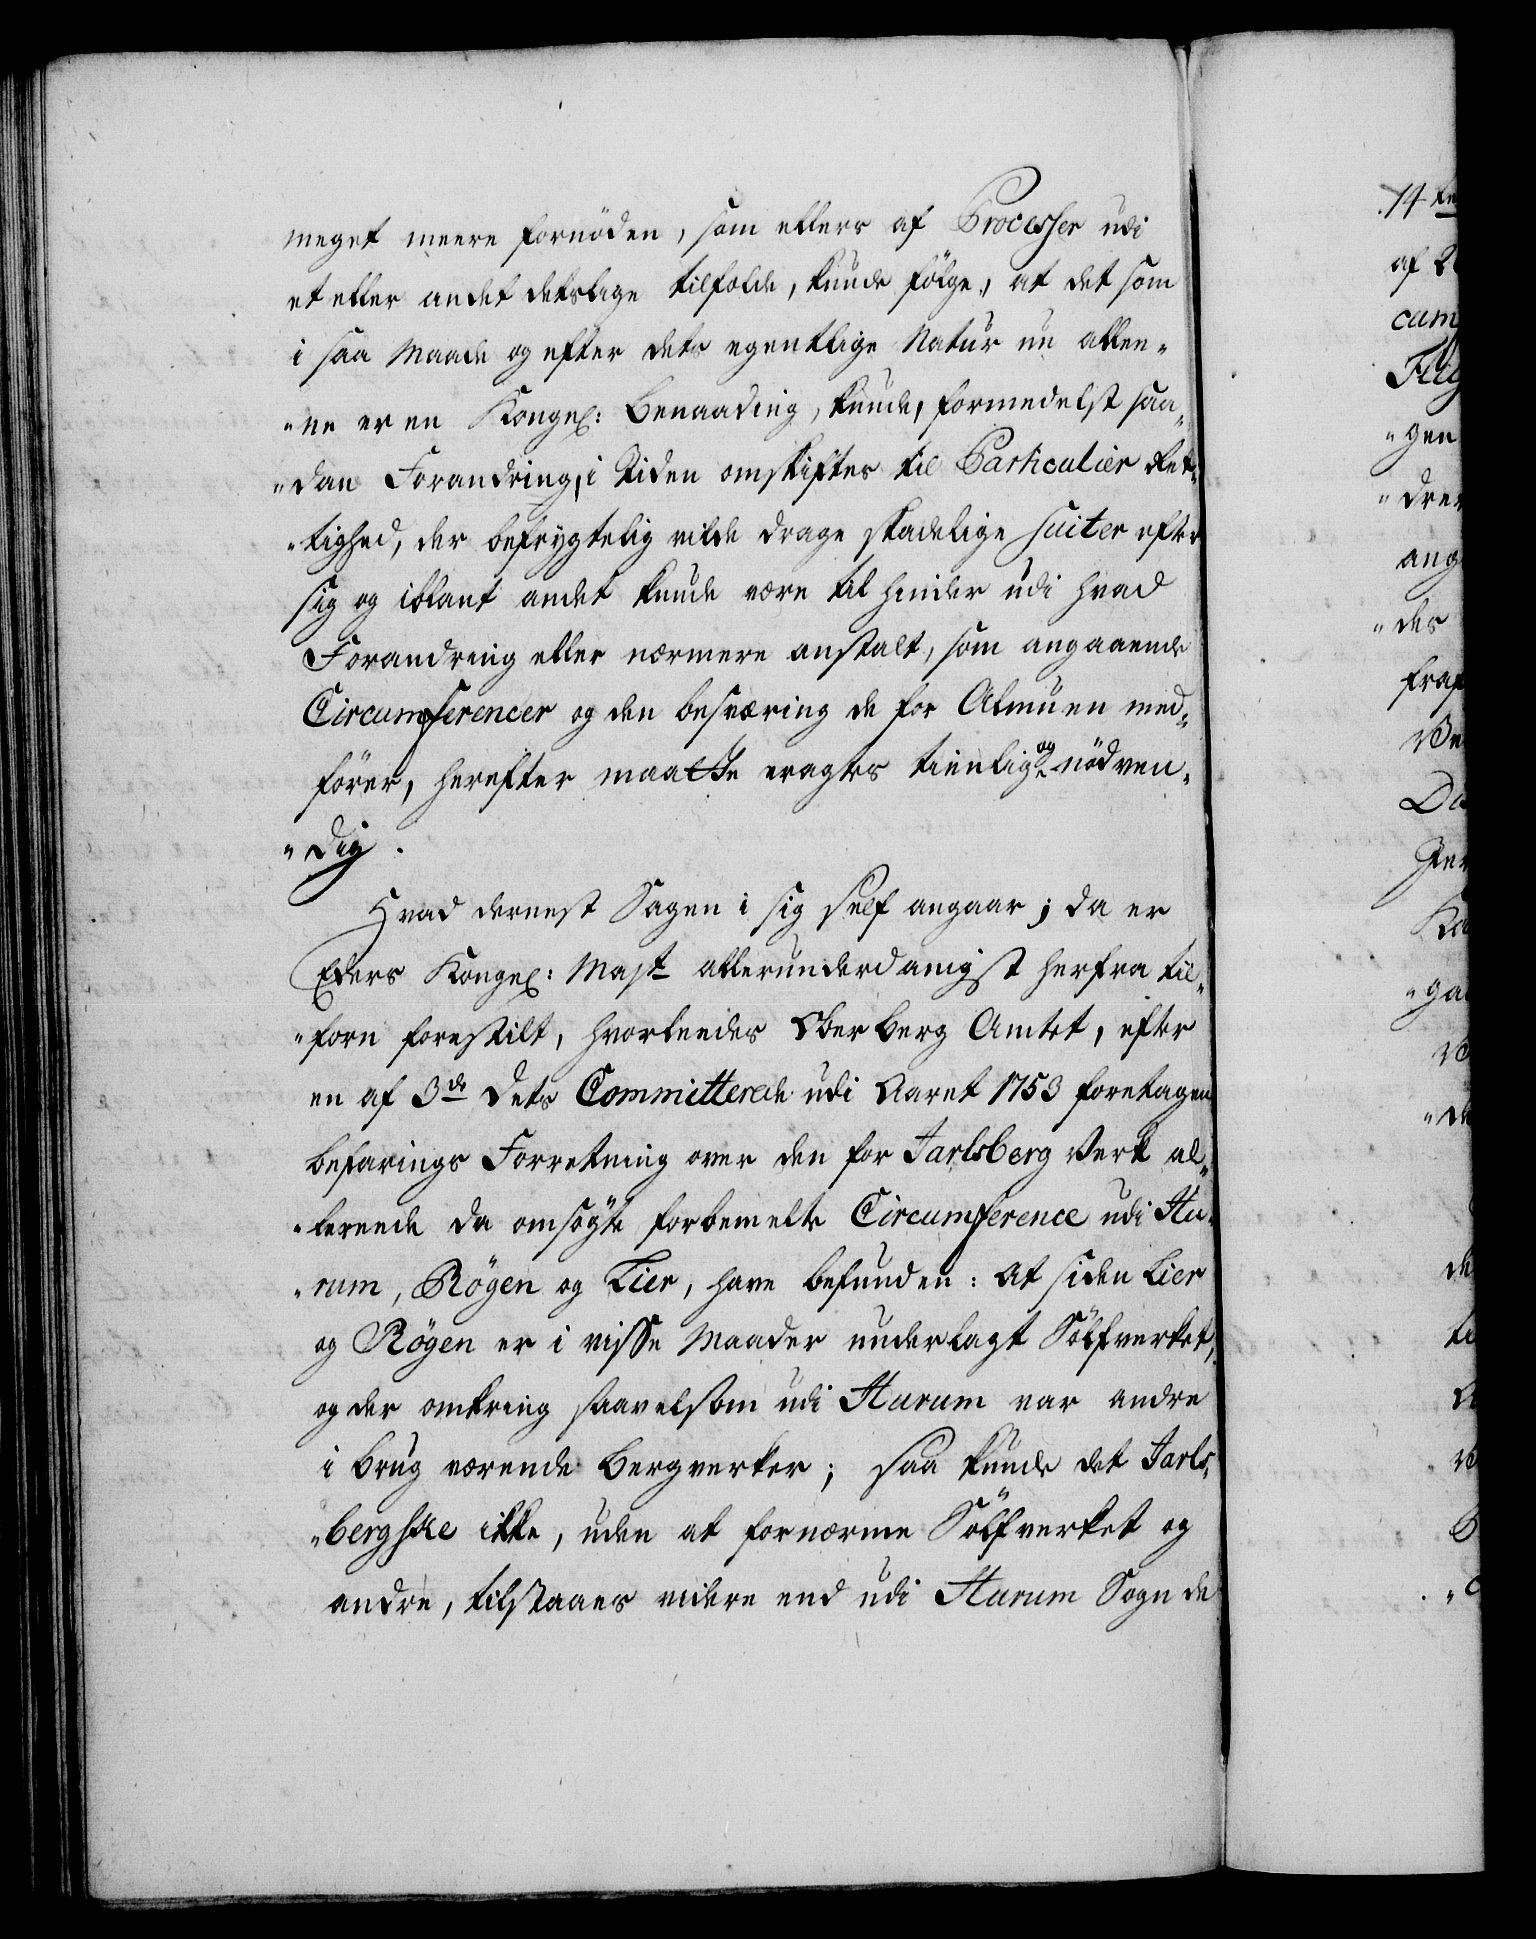 meget meere fornöden, som ellers af Processer udi
et eller andet detslige tilfelde, kunde fölge, at det som
i saa Maade og efter dets egentlige Natur nu allen„
„ne er en Kongel: Benaading, kunde, formedelst saa„
„dan Forandring, i Tiden omskiftes til Particulier Ret„
„tighed, der befrygtelig vilde drage skadelige suiter efter
sig og iblant andet kunde være til hinder udi hvad
Forandring eller nærmere anstalt, som angaaende
Circumferencer og den besværing de for Almuen med„
förer, herefter maatte eragtes tienlig og nödven„
„dig.
Hvad dernest Sagen i sig self angaar; da er
Eders Kongel: Majt allerunderdanigst herfra til„
„forn forestilt, hvorledes Ober Berg Amtet, efter
en af 3de dets Committerede udi Aaret 1753 foretagen
befarings Forretning over den for Jarlsberg Verk al„
„lereede da omsögte forbemelte Circumference udi Hu„
„rum, Rögen og Lier, have befunden: At siden Lier
og Rögen er i visse Maader underlagt Sölfverket,
og der omkring saavelsom udi Hurum var andre
i brug værende Bergverker; saa kunde det Jarls„
„bergske ikke, uden at fornærme Sölfverket og
andre, tilstaaes videre end udi Hurum Sogn de
14
af
cum
gen
„drer
ang
„des